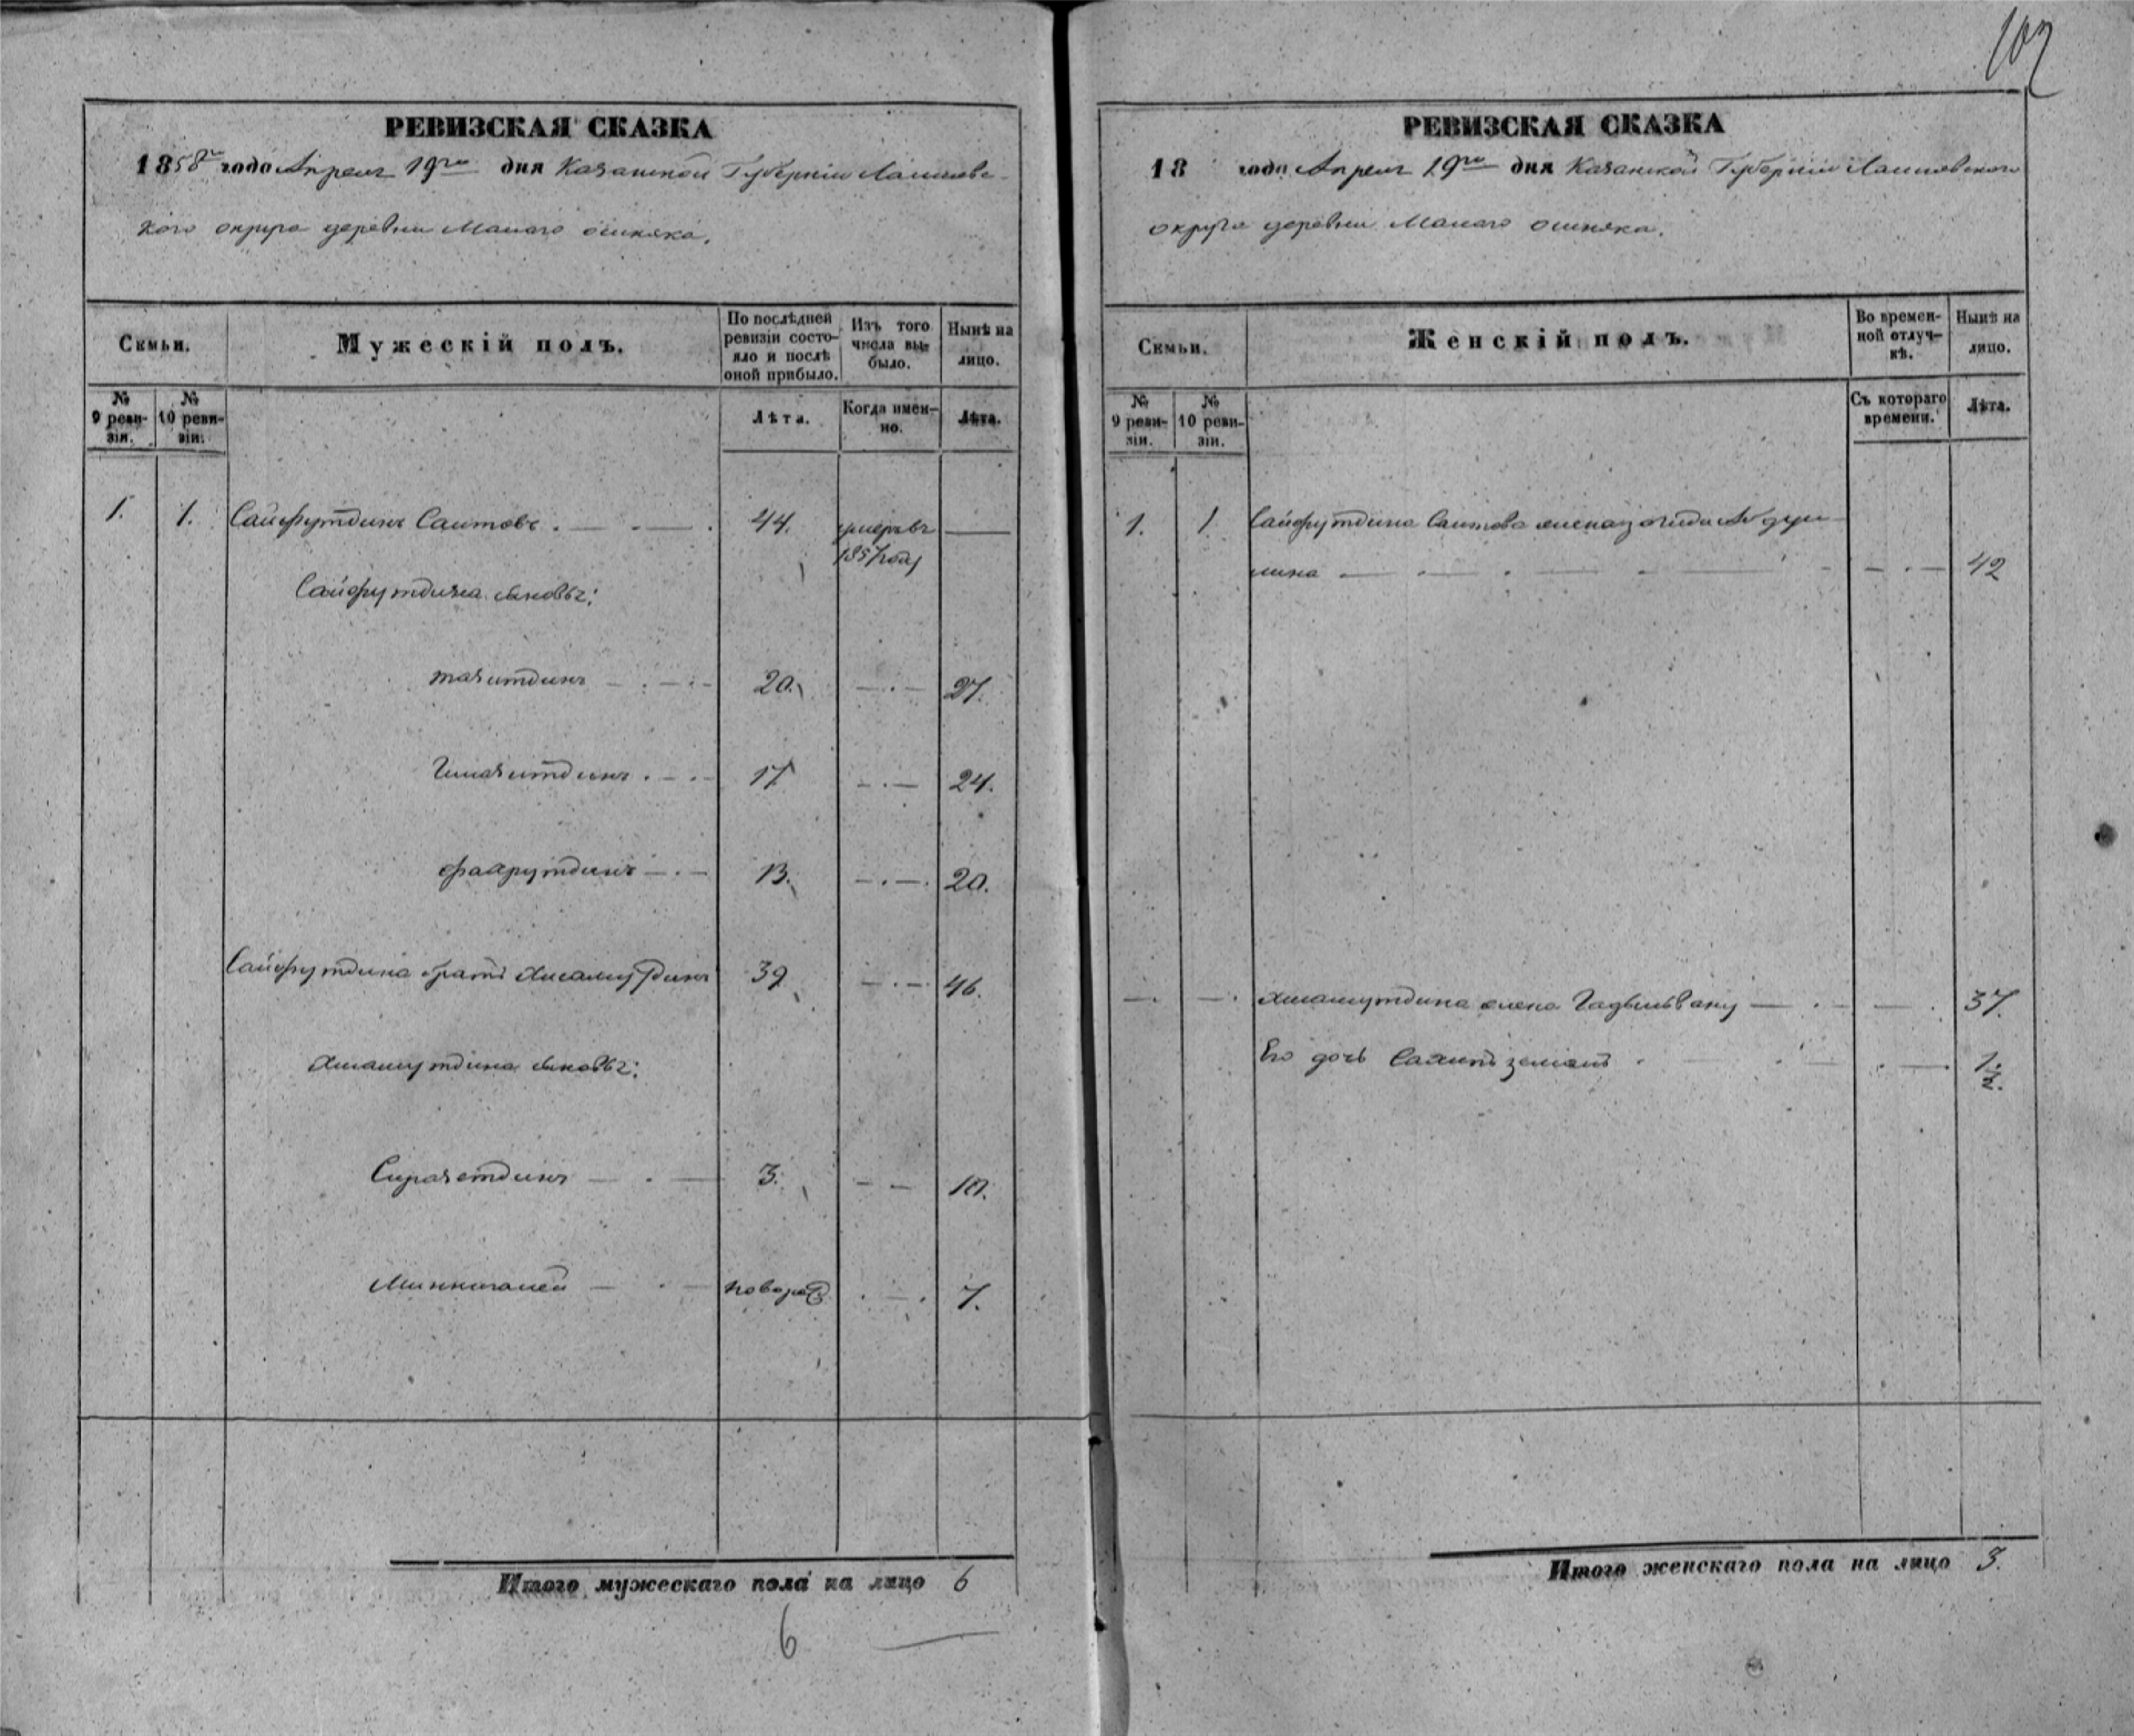 107
РЕВИЗСКАЯ СКАЗКА
1858го года Апреля 19го дня Казанской Губернiи Лаишевс-
кого округа деревни Малаго ошняка.
Скмьи.
Мужескій полъ.
По послѣдней ревизіи состо-
яло и послѣ оной прибыло.
Изъ того числа вы-
было.
Нынѣ на лицо.
№ 9 реви-
зіи.
№ 10 реви-
зіи.
Лѣта.
Когда имен-
но.
Лѣта.
1. 1. Сайфутдинъ Саитовъ 44. умеръ въ
1857 году
Сайфутдина сыновья:
тазитдинъ 20. 27.
17 24.
фахрутдинъ 13. 20.
Сайфутдина братъ Хисамутдинъ 39 46.
Хисамутдина сыновья:
Сиразетдинъ 3. 10.
Миннигалей новорож 7.
Итого мужескаго пола на лицо 6
6
РЕВИЗСКАЯ СКАЗКА
18 года Апреля 19го дня Казанской Губернiи Лаишевского
округа деревни Малаго ошняка.
Скмьи.
Женскій полъ.
Во времен-
ной отлуч-
кѣ.
Нынѣ на лицо.
№ 9 реви-
зіи.
№ 10 реви-
зіи.
Съ котораго времени.
Лѣта.
1. 1. Сайфутдина Саитова жена
42
Хисамутдина жена 37.
Его дочь 1/2.
Итого женскаго пола на лицо 3.